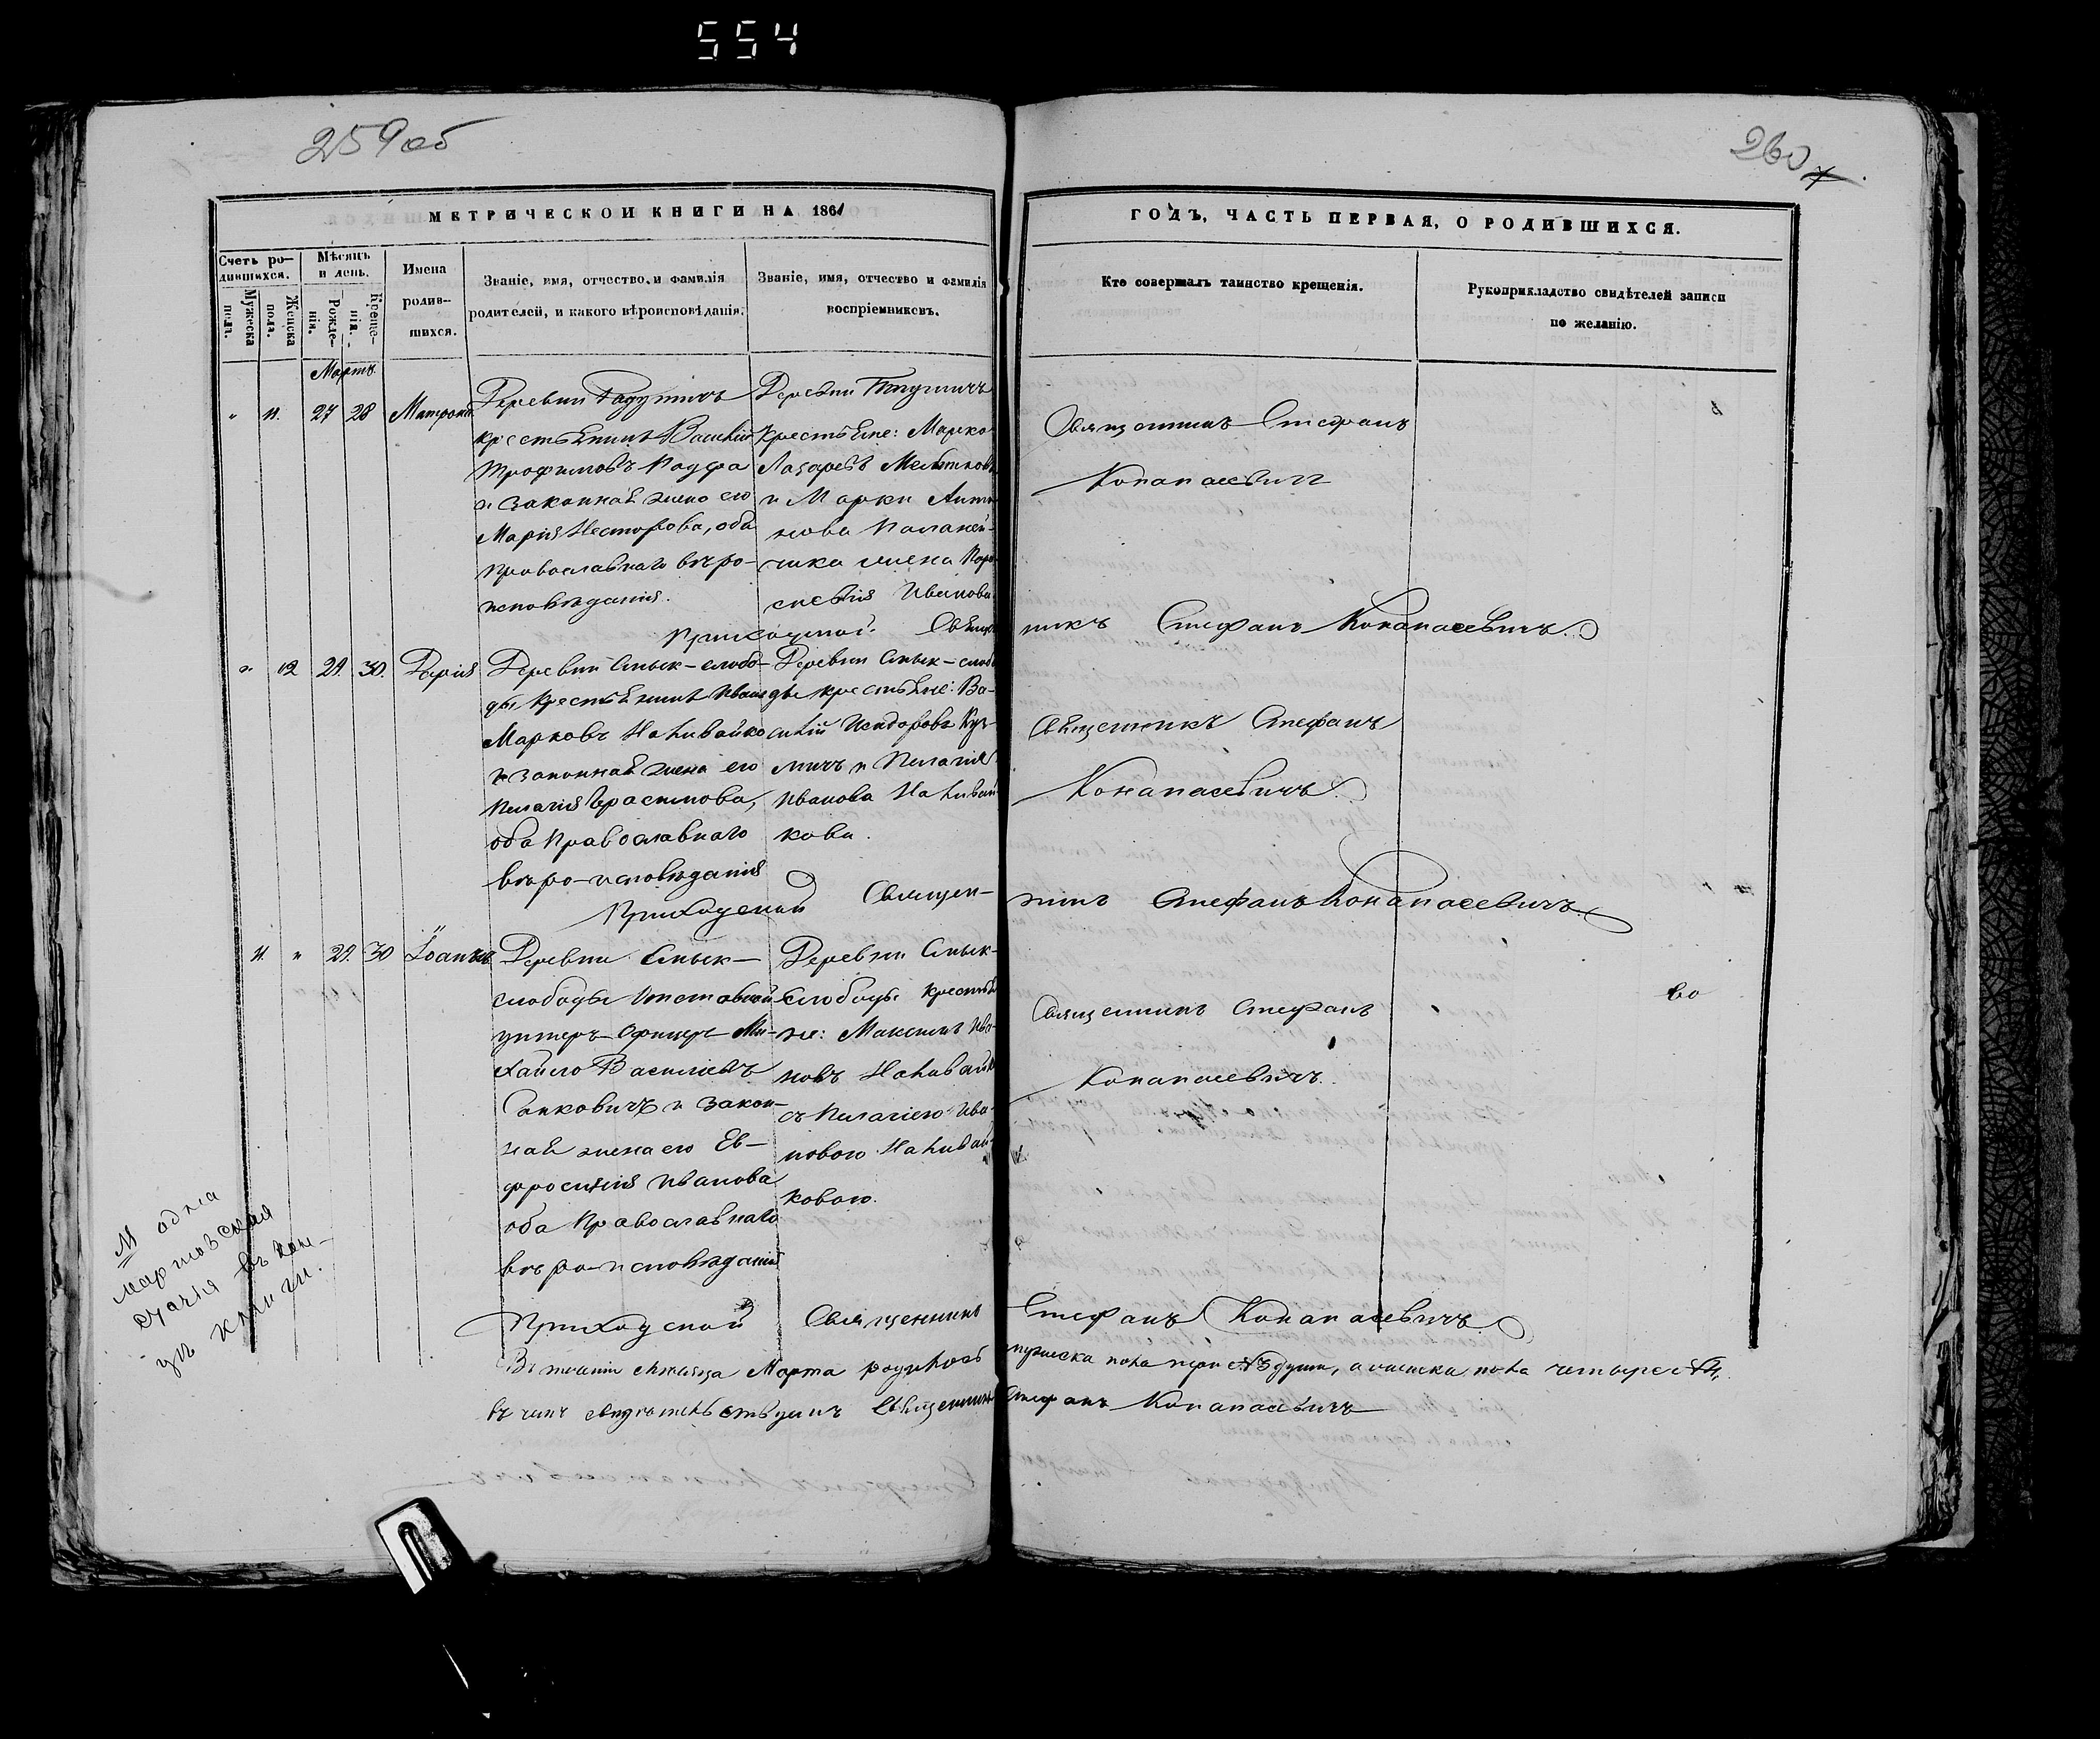 554
259 об
260
МЕТРИЧЕСКОЙ КНИГИ НА 1861
ГОДЪ, ЧАСТЬ ПЕРВАЯ, О РОДИВШИХСЯ.
Счетъ ро-
дившихся.
Мужеска
пола.
Женска
пола.
Мѣсяцъ
и день.
Рожде-
нія.
Креще-
нія.
Имена
родив-
шихся.
Званіе, имя, отчество, и фамилія
родителей, и какого вѣроисповѣданія.
Званіе, имя, отчество и фамилія
воспріемниковъ.
Кто совершалъ таинство крещенія.
Рукоприкладство свидѣтелей записи
по желанію.
Мартъ.
" 11. 27 28 Матрона
Деревни
крестьянинъ Василій
Трофимовъ
и законная жена его
Марія Несторова, оба
православнаго вѣро-
исповѣданія.
Деревни
крестьяне: Марко
Лазаревъ
и Марки Анто-
нова
жена Пара-
скевія Иванова
Священникъ Стефанъ
Конапасевичъ
Приходской Священ-
никъ Стефанъ Конапасевичъ
" 12 29. 30. Дарія
Деревни Смык-слобо-
ды крестьянинъ Иванъ
Марковъ Наливайко
и законная жена его
Пелагія Герасимова,
оба Православнаго
вѣро-исповѣданія
Деревни Смык-слобо-
ды крестьяне: Ва-
силій Исидоровъ Куз-
мичъ и Пелагія
Иванова Наливай-
кова.
Священникъ Стефанъ
Конапасевичъ
Приходской Священ-
никъ Стефанъ Конапасевичъ
11. " 29. 30 Іоаннъ
Деревни Смык-
слободы Отставной
унтеръ-офицеръ Ми-
хайло Василіевъ
Санковичъ и закон-
ная жена его Ев-
фросинія Иванова
оба Православнаго
вѣро-исповѣданія
Деревни Смык-
слободы крестья-
не: Максимъ Ива-
новъ Наливайко
съ Пелагіею Ива-
новою Наливай-
ковою.
Священникъ Стефанъ
Конапасевичъ.
Приходской Священникъ Стефанъ Конапасевичъ
Въ теченіи мѣсяца Марта родилось мужеска пола три №3 души, а женска пола четыре №4,
въ чемъ свидѣтельствуемъ Священникъ Стефанъ Конапасевичъ
М одна
мартовская
въ кон-
цѣ книги.